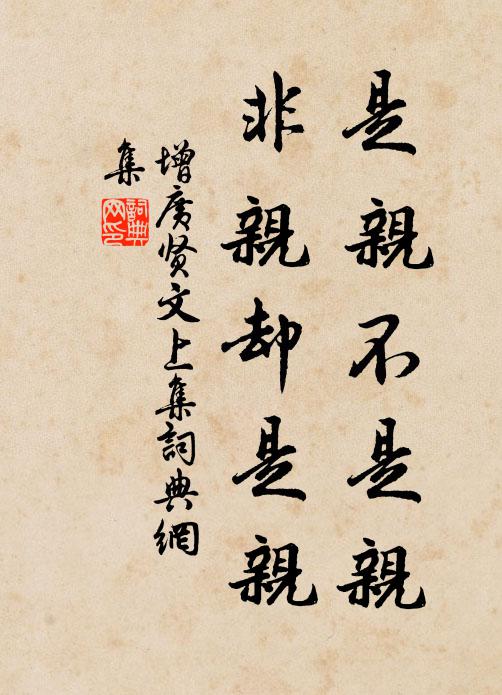 是親不是親
非親却是親
增廣贤文上集詞典網
集
詞典網印